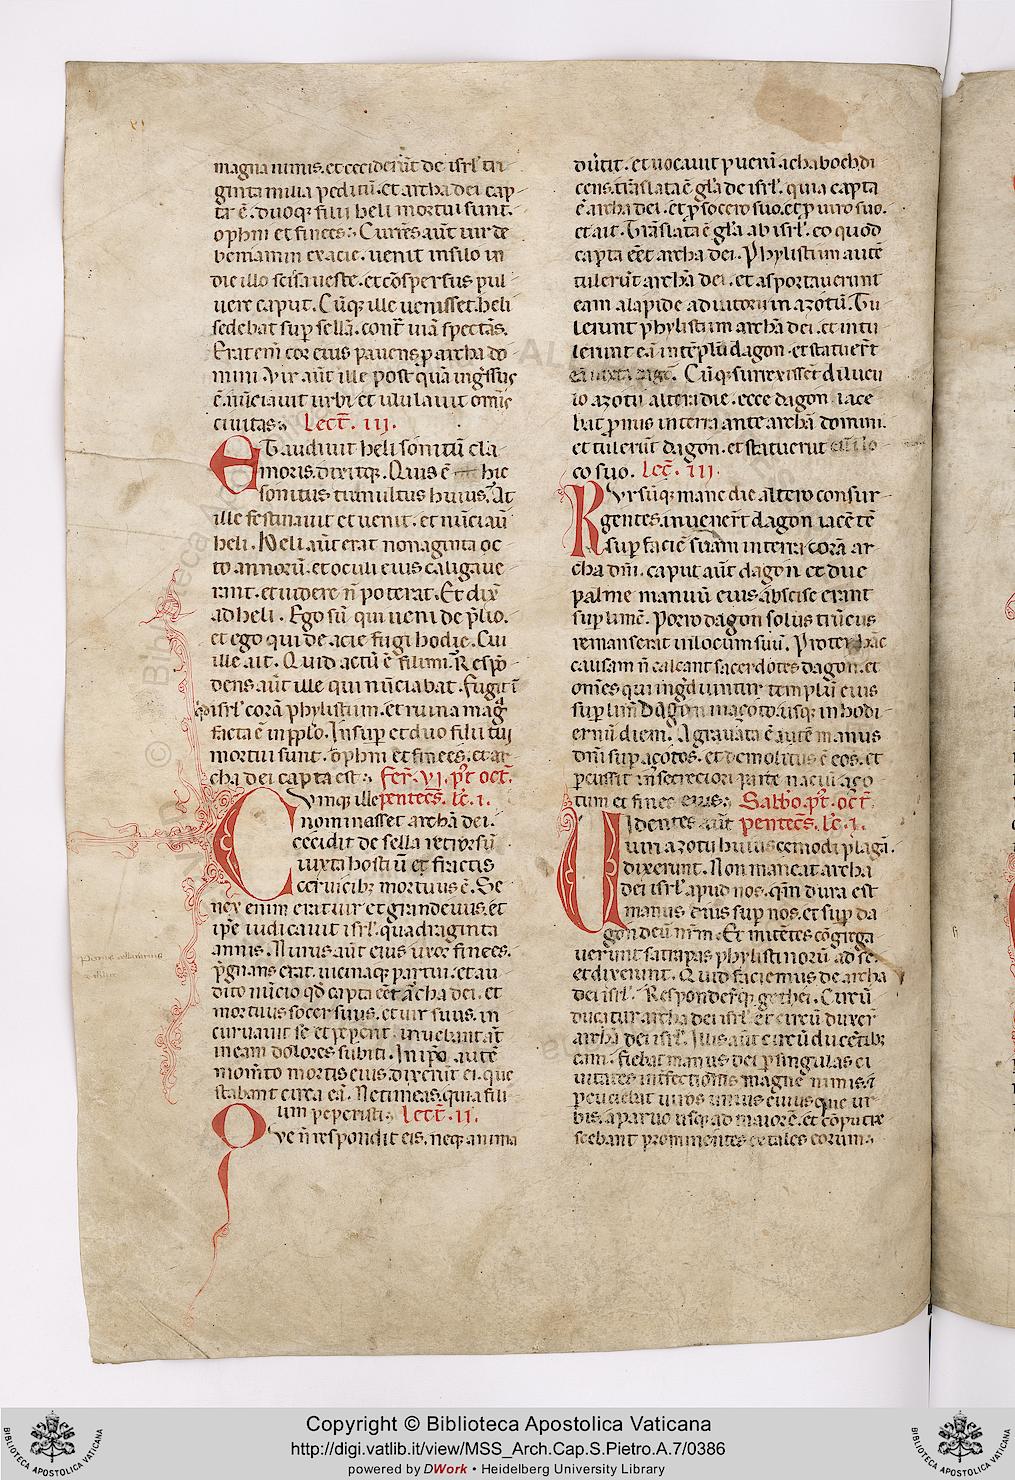 magna nimis. et cecider̄t de isrl̄ tri
ginta milia peditū. et archa dei cap
ta ē. duoq; filii heli mortui sunt.
ophni et finees. Currēs aūt uir de
beniamin ex acie. uenit in silo in
die illo scissa ueste. et cōspersus pul
uere caput. Cūq; ille uenisset. heli
sedebat sup̄ sellā. cont̄ uiā spectās.
Erat eni cor eius pauens p̄ archa do
mini. Vir aūt ille post quā ingr̄ssus
ē. nūciauit urbi. et ululauit omīs
ciuitas. Lect̄. iii.
ET audiuit heli sonitū cla
moris. dixitq;. Quis ē hic
sonitus tumultus huius. At
ille festinauit et uenit. et nūciaū
heli. Heli aūt erat nonaginta oc
to annorū. et oculi eius caligaue
rant. et uidere n̄ poterat. Et dix̄
ad heli. Ego sū qui ueni de p̄lio.
et ego qui de acie fugi hodie. Cui
ille ait. Quid actū ē fili mi. Respō
dens aūt ille qui nūciabat. Fugit
isrl̄ corā phylistiim. et ruina maḡ
facta ē in pp̄lo. Insup̄ et duo filii tui
mortui sunt. ophni et finees. et ar
cha dei capta est. Fer̄. vi. p̄t oct̄.
Cumque ille pentecs̄. lc̄. i.
nominasset archā dei.
cecidit de sella retrorsū
iuxta hostiū et fractis
ceruicib; mortuus ē. Se
nex enim erat uir et grandeuus. et
ip̄e iudicauit isrl̄. quadraginta
annis. Nurus aūt eius uxor finees.
p̄gnans erat. uicinaq; partui. et au
dito nūcio qd̄ capta eēt archa dei. et
mortuus socer suus. et uir suus. in
curuauit se et peperit. irruebant aūt
in eam dolores subiti. In ip̄o autē
momēto mortis eius. dixerūt ei. que
stabant circa eā. Ne timeas. quia fili
um peperisti. Lect̄. ii.
Que n̄ respondit eis. neq; anima
dūtit. et uocauit pueru ichaboch. di
cens. trāslata ē glā de isrl̄. quia capta
ē archa dei. et p̄ socero suo. et p̄ uiro suo.
et ait. Trāslata ē glā ab isrl̄. eo quod
capta eēt archa dei. Phylistiim autē
tulerūt archā dei. et asportauerunt
eam a lapide adiutorii in azotū. Tu
lerunt phylistiim archā dei. et intu
lerunt eā in tēplū dagon. et statuer̄t
eā iuxta dagō. Cūq; surrexissēt dilucu
lo azotii altera die. ecce dagon iace
bat pronus in terra ante archā domini.
et tulerūt dagon. et statuerūt eū i lo
co suo. Lec̄. iii.
Rursūq; mane die altero consur
gentes. inuener̄t dagon iacētē
sup̄ faciē suam in terra corā ar
cha dm̄i. caput aūt dagon et due
palme manuū eius abscise erant
sup̄ limē. Porro dagon solus trūcus
remanserat in locum suū. Propter hāc
causam n̄ calcant sacerdotes dagon. et
om̄es qui ingrediuntur templū eius
sup̄ limen dagon in azoto. usq; in hodi
ernū diem. Agrauata ē autē manus
dm̄i sup̄ azotos. et demolitus ē eos. et
percussit in secreciori parte naciū. azo
tum et fines eius. Sabb̄o. p̄t. oct̄.
Uidentes aūt pentecs̄. lc̄. i.
uiri azotii huiuscemodi plagā.
dixerunt. Non maneat archa
dei isrl̄ apud nos. qm̄ dura est
manus eius sup̄ nos. et sup̄ da
gon deū nrm̄. Et mittētes cōgrega
uerunt satrapas phylistinorū ad se.
et dixerunt. Quid faciemus de archa
dei isrl̄. Responder̄q; gethei. Circū
ducatur archa dei isrl̄. et circū duxer̄
archā dei isrl̄. Illis aūt circū ducētib;
eam. fiebat manus dei p̄ singulas ci
uitates interfectionis magne nimis. et
percuciebat uiros unius cuiusque ur
bis. a paruo usq; ad maiorē. et cōputre
scebant prominentes extales eorum.
Copyright © Biblioteca Apostolica Vaticana
http://digi.vatlib.it/view/MSS_Arch.Cap.S.Pietro.A.7/0386
powered by DWork • Heidelberg University Library
BIBLIOTECA APOSTOLICA VATICANA
BIBLIOTECA APOSTOLICA VATICANA